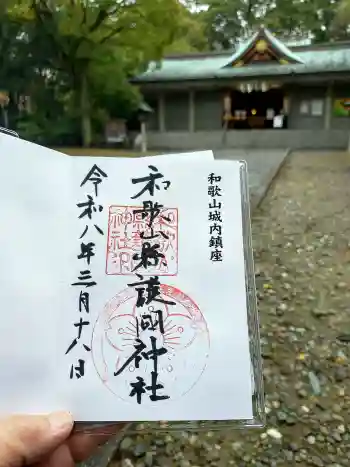 和歌山城内鎮座
和歌山縣護國神社
令和八年三月十八日